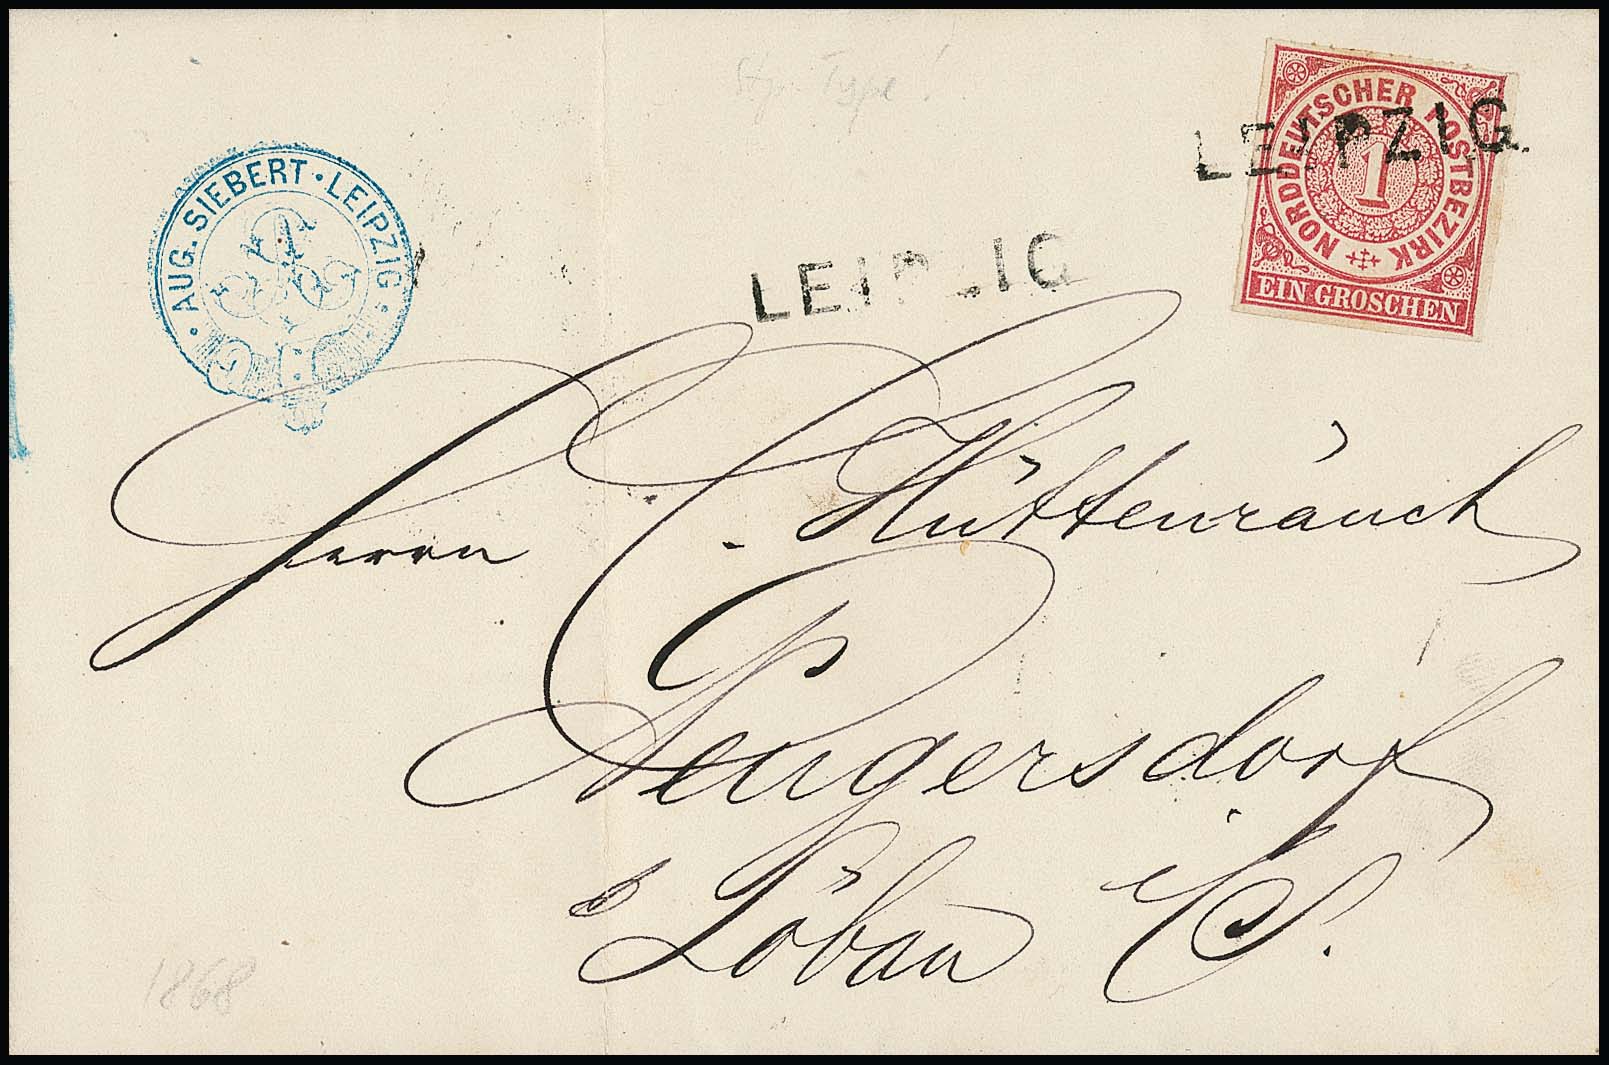 Stp. Type!
· AUG. SIEBERT · LEIPZIG ·
LEIPZIG.
NORDDEUTSCHER POSTBEZIRK
1
EIN GROSCHEN
LEIPZIG
Herrn C. Hüttenrauch
Neugersdorf
b Löbau i/S.
1868